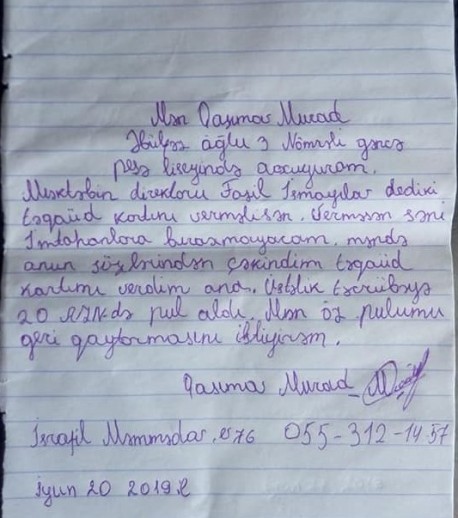 Mən Qasımov Murad
Əbülfəz oğlu 3 Nömrəli gəncə
peşə liseyində oxuyuram.
Məktəbin direktoru Fazil İsmayılov dediki
təqaüd kartını verməlisən. Verməsən səni
İmtahanlara buraxmayacam. məndə
onun sözlərindən çəkindim təqaüd
kartımı verdim ona. Üstəlik təcrübəyə
20 AZN də pul aldı. Mən öz pulumu
geri qaytarmasını istiyirəm.
Qasımov Murad
İsrafil Məmmədov. ev 76 055-312-14.57
iyun 20 2019.